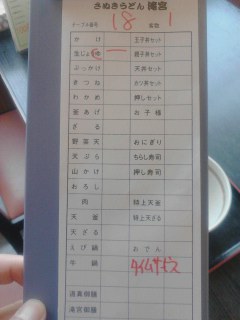 さぬきうどん 滝宮
テーブル番号 18 名数 1
かけ 玉子丼セット
生じょうゆ 一 親子丼セット
ぶっかけ 天丼セット
きつね カツ丼セット
わかめ 押しセット
釜あげ お子様
ざる
野菜天 おにぎり
天ぷら ちらし寿司
山かけ 押し寿司
おろし
肉 特上天釜
天釜 特上天ざる
天ざる
えび鍋 おでん
牛鍋 タイムサービス
滝宮御膳